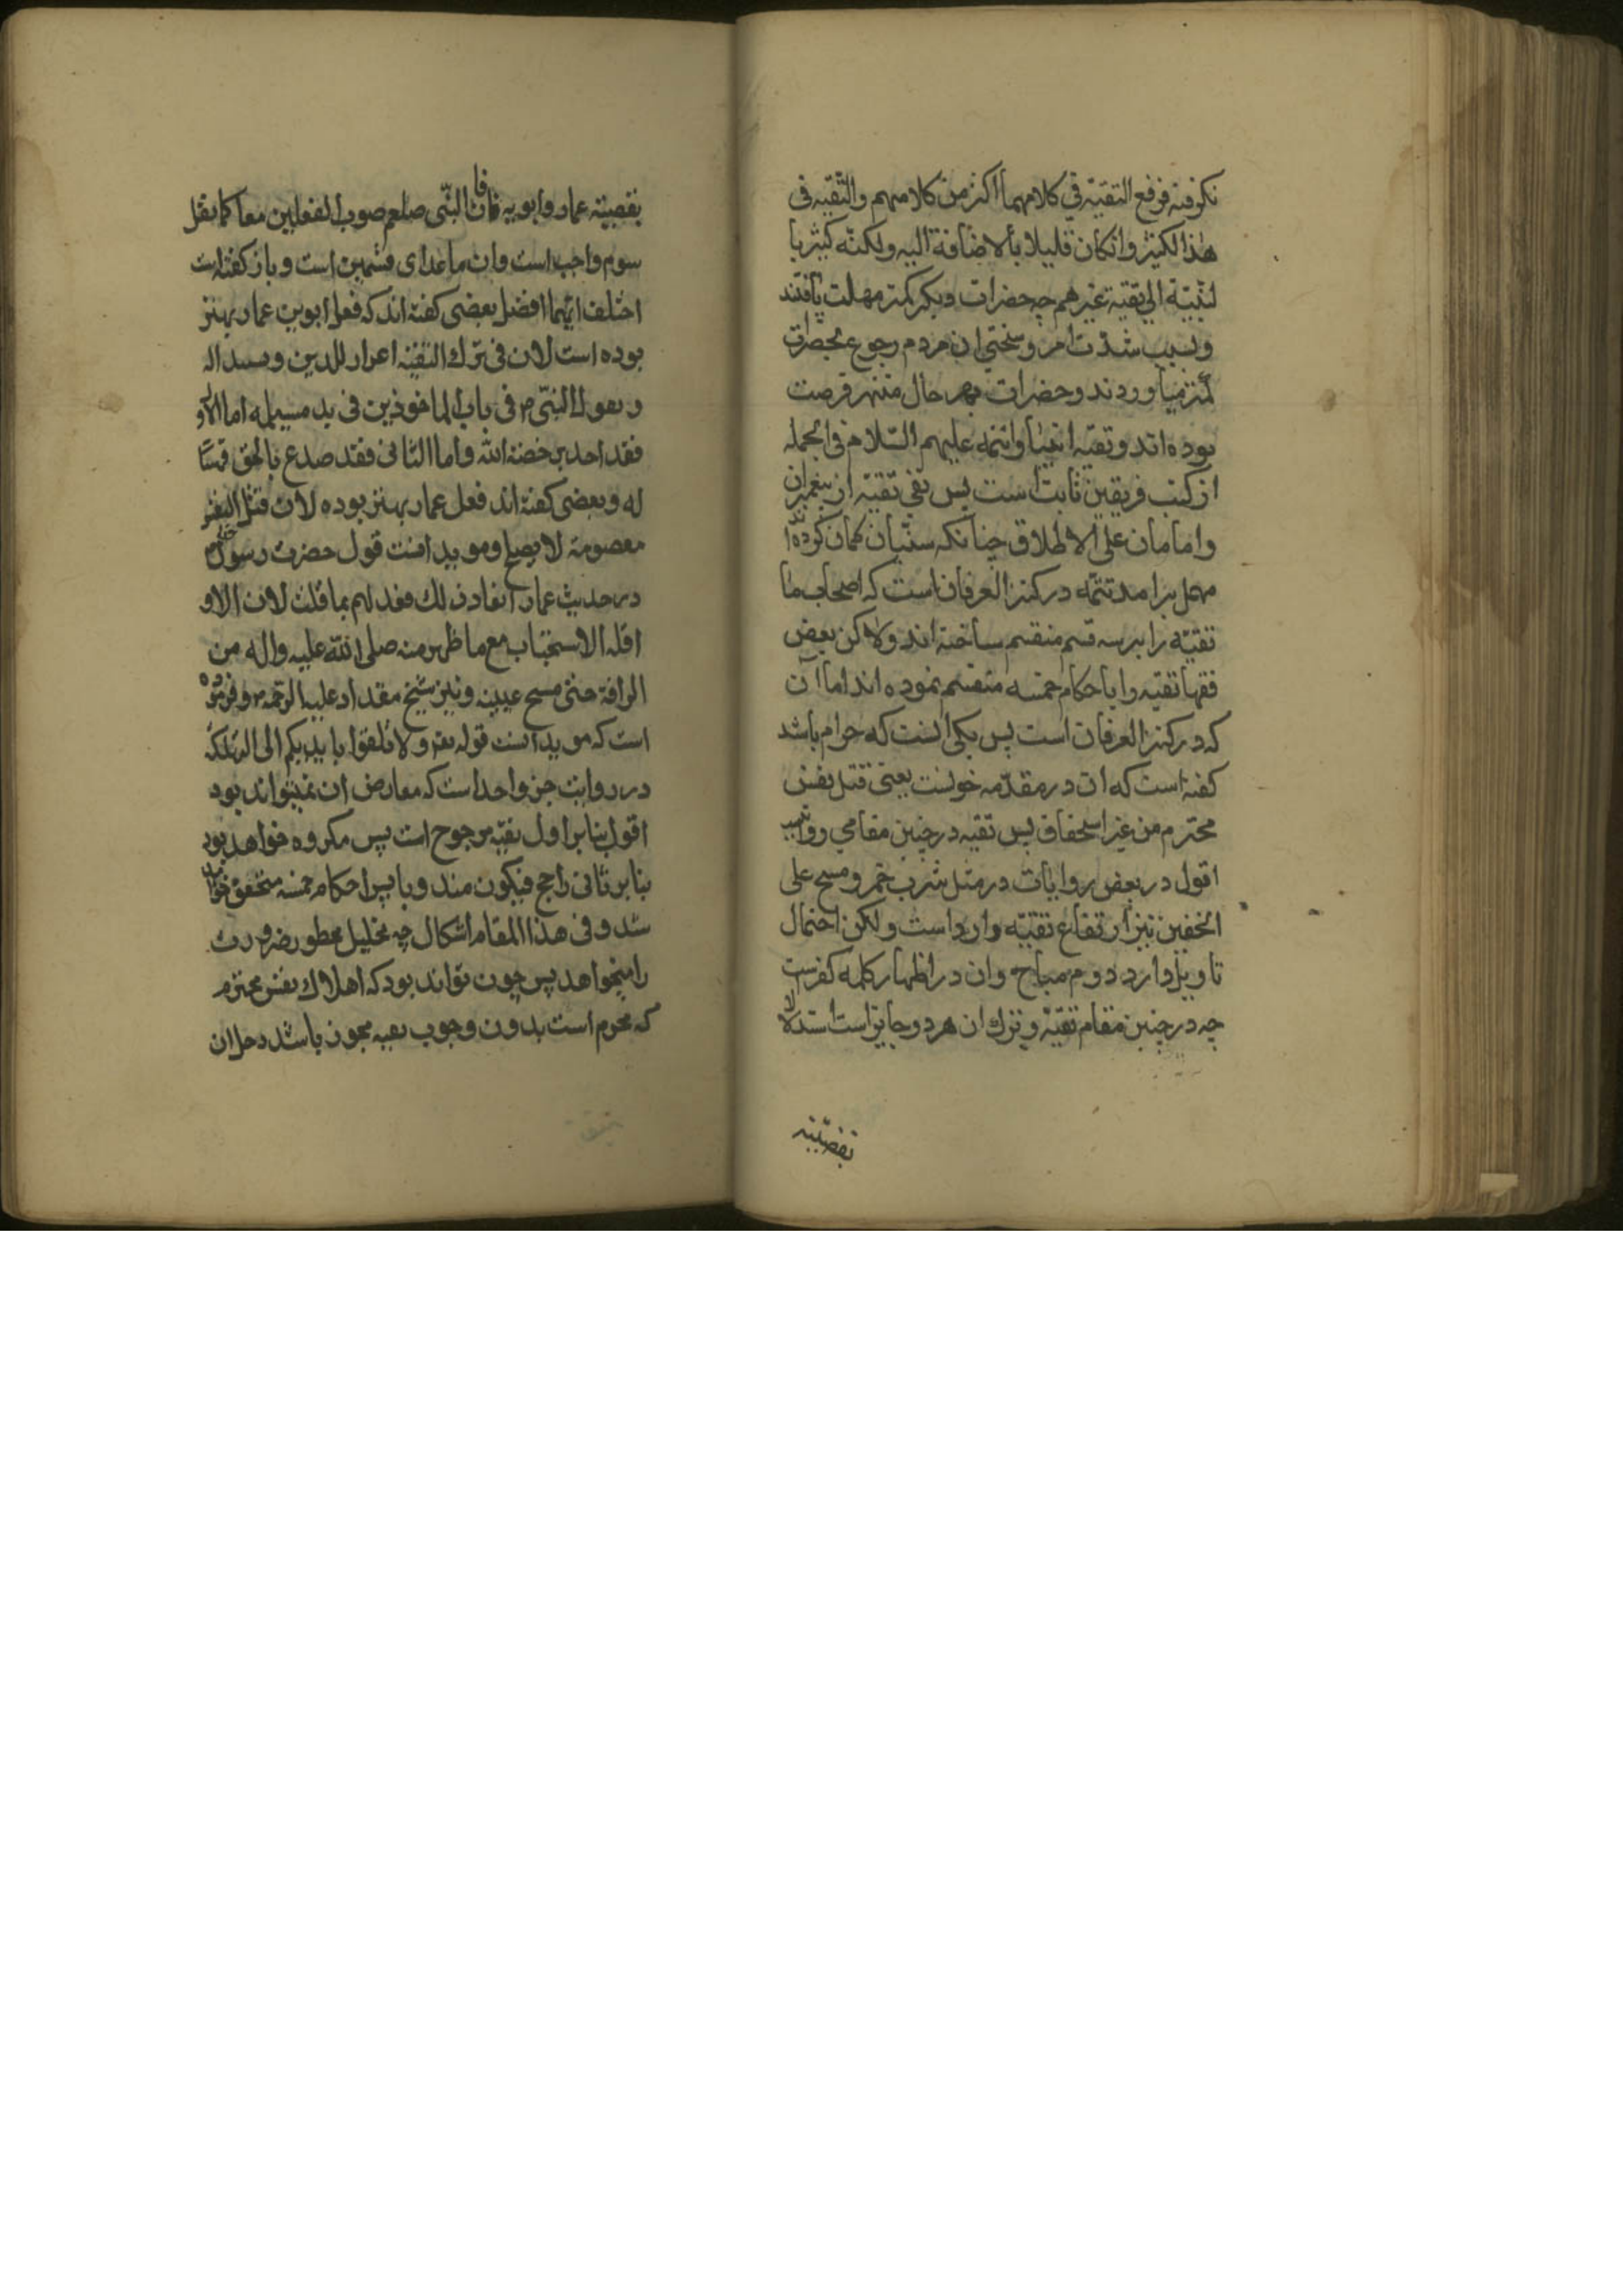 فرفع التقیّة فی کلامهما اکثر من کلامهم والتّقیه فی
هذا الکثیر وانکان قلیلا بالاضافة الیه ولکنّه کثیر با
لنّسبة الی تقیّة غیرهم چه حضرات دیکر کمتر مهلت یافتند
وبسبب شدّت امر وسختی ان مردم رجوع بحضرات
کمتر میآوردند وحضرات بهر حال منتهز فرصت
بوده اند وتقیّه انبیا وائمّه علیهم السّلام فی الجمله
از کتب فریقین ثابت است پس نفی تقیّه از پیغمبران
وامامان علی الاطلاق چنانکه سنّیان کمان کرده اند
مهمل برامد تتمّه در کنز العرفان است که اصحاب ما
تقیّه را بر سه قسم منقسم ساخته اند ولاکن بعض
فقها تقیّه را باحکام خمسه منقسم نموده اند اما آن
که در کنز العرفان است پس یکی انست که حرام باشد
کفته است که ان در مقدّمه خونست یعنی قتل نفس
محترم من غیر استحقاق پس تقیه در چنین مقامی روا نیست
اقول در بعض روایات در مثل شرب خمر ومسح علی
الخفین نیز ارتفاع تقیّه وارد است ولکن احتمال
تاویل دارد دوم مباح وان در اظهار کلمه کفرست
چه در چنین مقام تقیّة وترک ان هر دو جایز است استدلالا
بقضیّته
بقضیّته عمار وابویه فان النّبی صلعم صوب الفعلین معا کما نقل
سوم واجب است وان ما عدای قسمین است و باز کفته است
اختلف ایّهما افضل بعضی کفته اند که فعل ابوین عمار بهتر
بوده است لان فی ترک التقیّه اعزاز للدین
النّبی ص فی باب الماخوذین فی ید مسیلمه اما الاول
فقد اخذ برخصة الله واما الثانی فقد صدع بالحق فهنیئا
له وبعضی کفته اند فعل عمار بهتر بوده لان قتل النفس
معصومة لا یصلح وموید انست قول حضرت رسول
در حدیث عمار لک فعد لهم بما قلت لان
اقله الاستحباب مع ما ظهر منه صلی الله علیه واله من
الرافة حتی مسح عینیه ونیز شیخ مقداد علیه الرحمه فرموده
است که موید انست قوله تعر ولا تلقوا بایدیکم الی التهلکة
در روایت خبر واحد است که معارض ان نمیتواند بود
اقول بنا بر اول تقیّه مرجوح است پس مکروه خواهد بود
بنا بر ثانی راجح فیکون مندوبا پس احکام خمسه متحقق خواهد
شد وفی هذا المقام اشکال چه تحلیل محظور ضرورت
را میخواهد پس چون تواند بود که اهلاک نفس محترم
که محرم است بدون وجوب تقیه مجوز باشد وحل ان